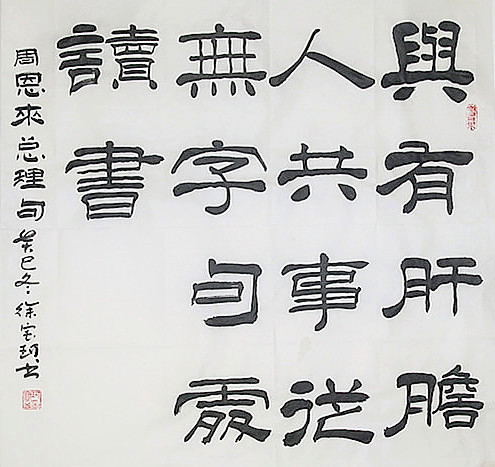 與有肝膽
人共事從
無字句處
讀書
周恩來总理句 癸巳冬 徐宝书